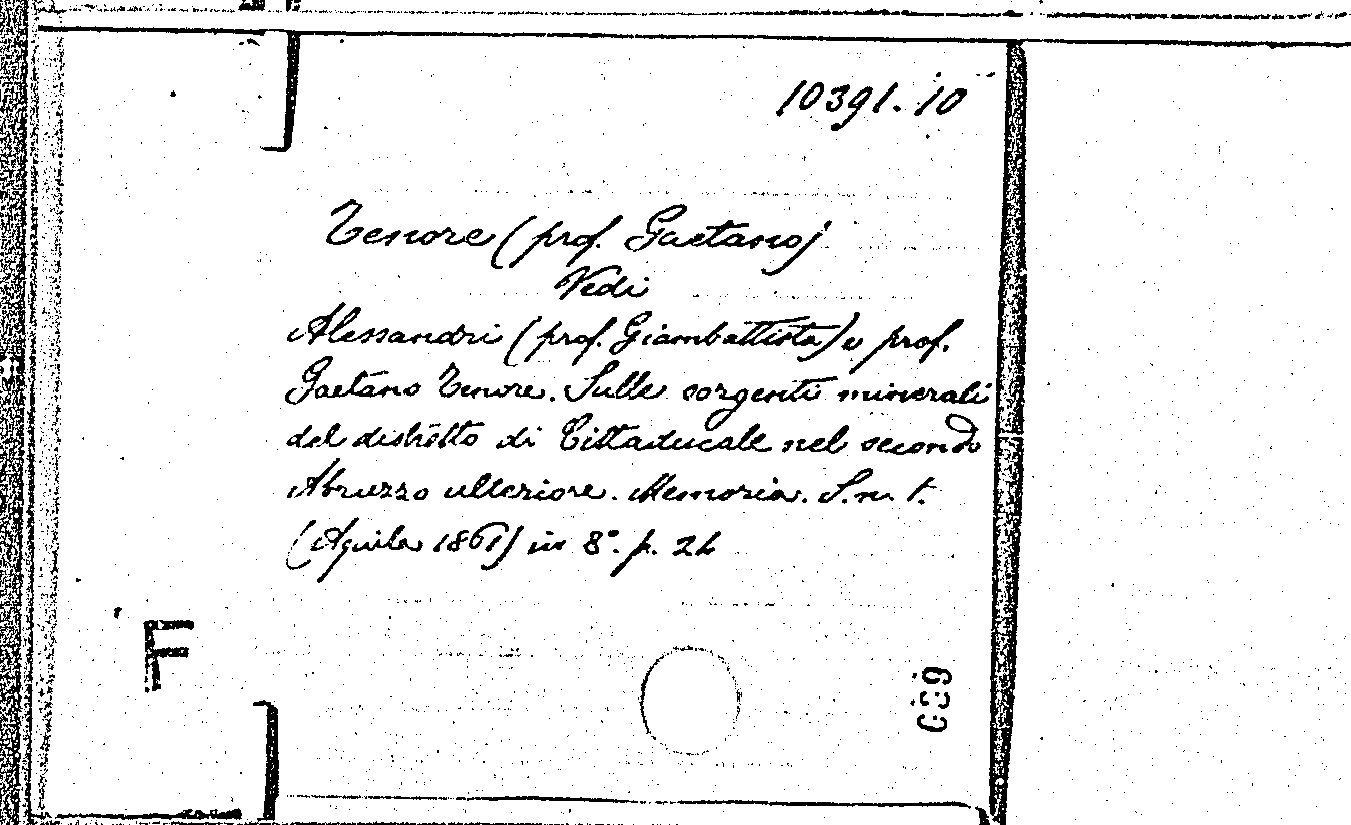 10391.10
Tenore (prof. Gaetano)
Vedi
Alessandri (prof. Giambattista) e prof.
Gaetano Tenore. Sulle sorgenti minerali
del distretto di Cittaducale nel secondo
Abruzzo ulteriore. Memoria. S. n. t.
(Aquila 1861) in 8°. p. 24
F